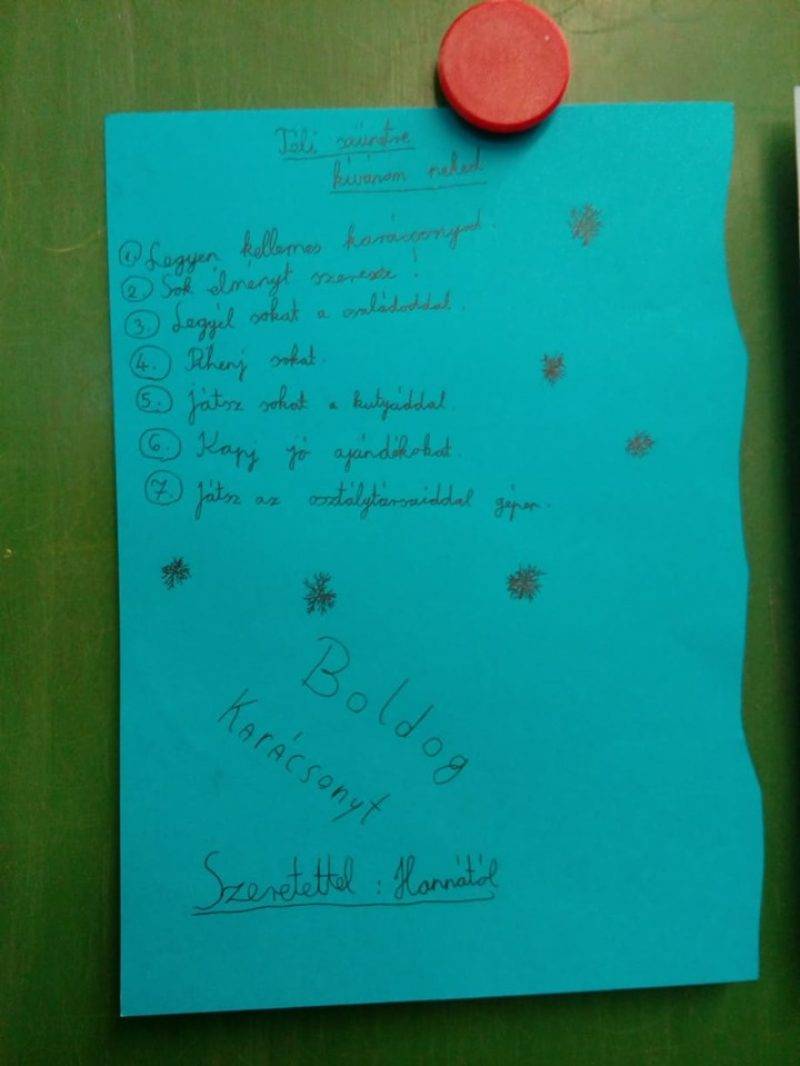 Téli szünetre
kívánom neked
1. Legyen kellemes karácsonyod.
2. Sok élményt szerezz!
3. Legyél sokat a családoddal.
4. Pihenj sokat.
5. Játsz sokat a kutyáddal.
6. Kapj jó ajándékokat.
7. Játsz az osztálytársaiddal gépen.
Boldog
Karácsonyt
Szeretettel: Hannától